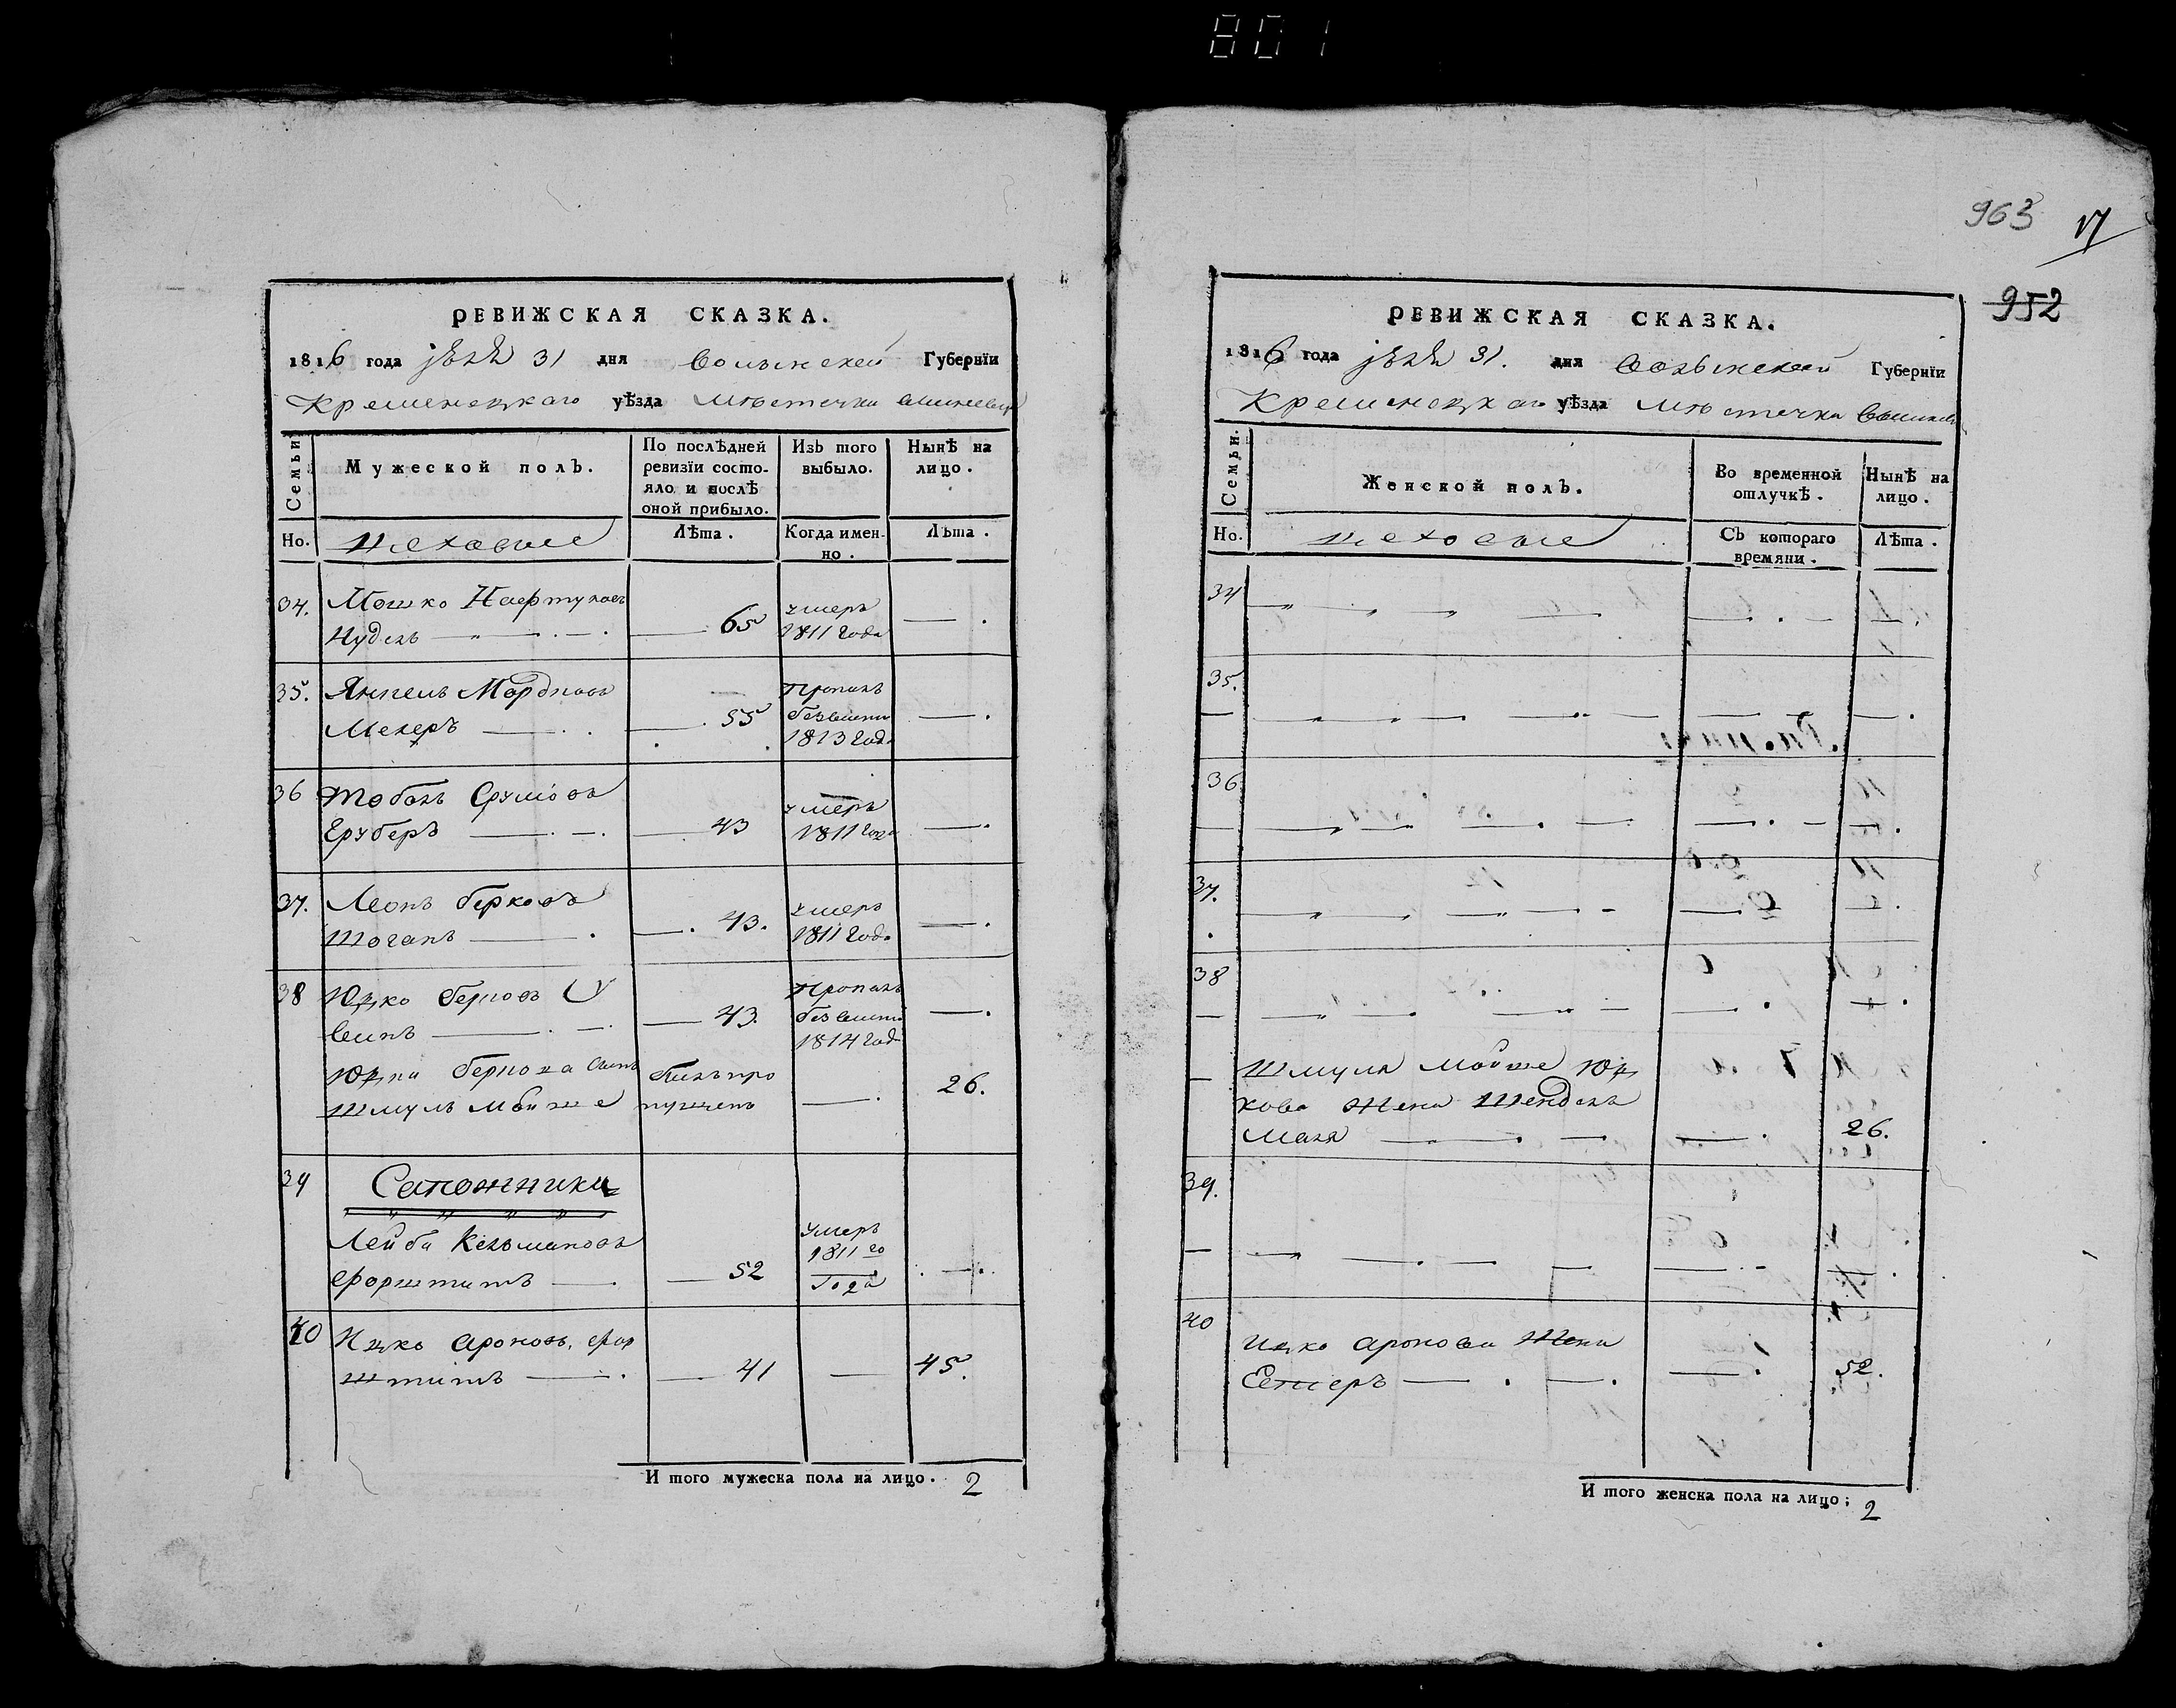 801
963 17
952
РЕВИЖСКАЯ СКАЗКА.
1816 года 31 дня Волынской Губернїи
Кременецкаго уѣзда Мѣстечка
Семьи
Мужеской полъ.
По послѣдней ревизїи состо-
яло и послѣ
оной прибыло.
Изъ того
выбыло.
Нынѣ на
лицо.
Но.
Цеховые
Лѣта.
Когда имен-
но.
Лѣта.
34. Мошко Нафтулов
Нудель 65 умеръ
1811 года
35. Янкель Мордковъ
Мелеръ 55 Пропалъ
безвести
1813 года
36 Срулiовъ
Груберъ 43 умеръ
1811 года
37. Леонъ Берковъ
43. умеръ
1811 года
38 Юзко Берковъ
43. Пропалъ
безвести
1814 год
Берковa сынъ былъ про
Шмуль Мойше пущенъ 26.
39 Сапожники
Лейба Кельмановъ
Форштитъ 52 умеръ
1811 го
года
40 Ицко Ароновъ Фор
штитъ 41 45.
И того мужеска пола на лицо. 2
РЕВИЖСКАЯ СКАЗКА.
1816 года 31. дня Волынской Губернїи
Кременецкаго уѣзда Мѣстечка
Семьи.
Женской полъ.
Во временной
отлучкѣ.
Нынѣ на
лицо.
Но.
Цеховые
Съ котораго
времяни.
Лѣта.
34
35.
36
37.
38
Шмуля Мойше Юз
кова Жена Шендель
Маля 26.
39.
40 Ицко Аронова Жена
Естеръ 52.
И того женска пола на лицо; 2